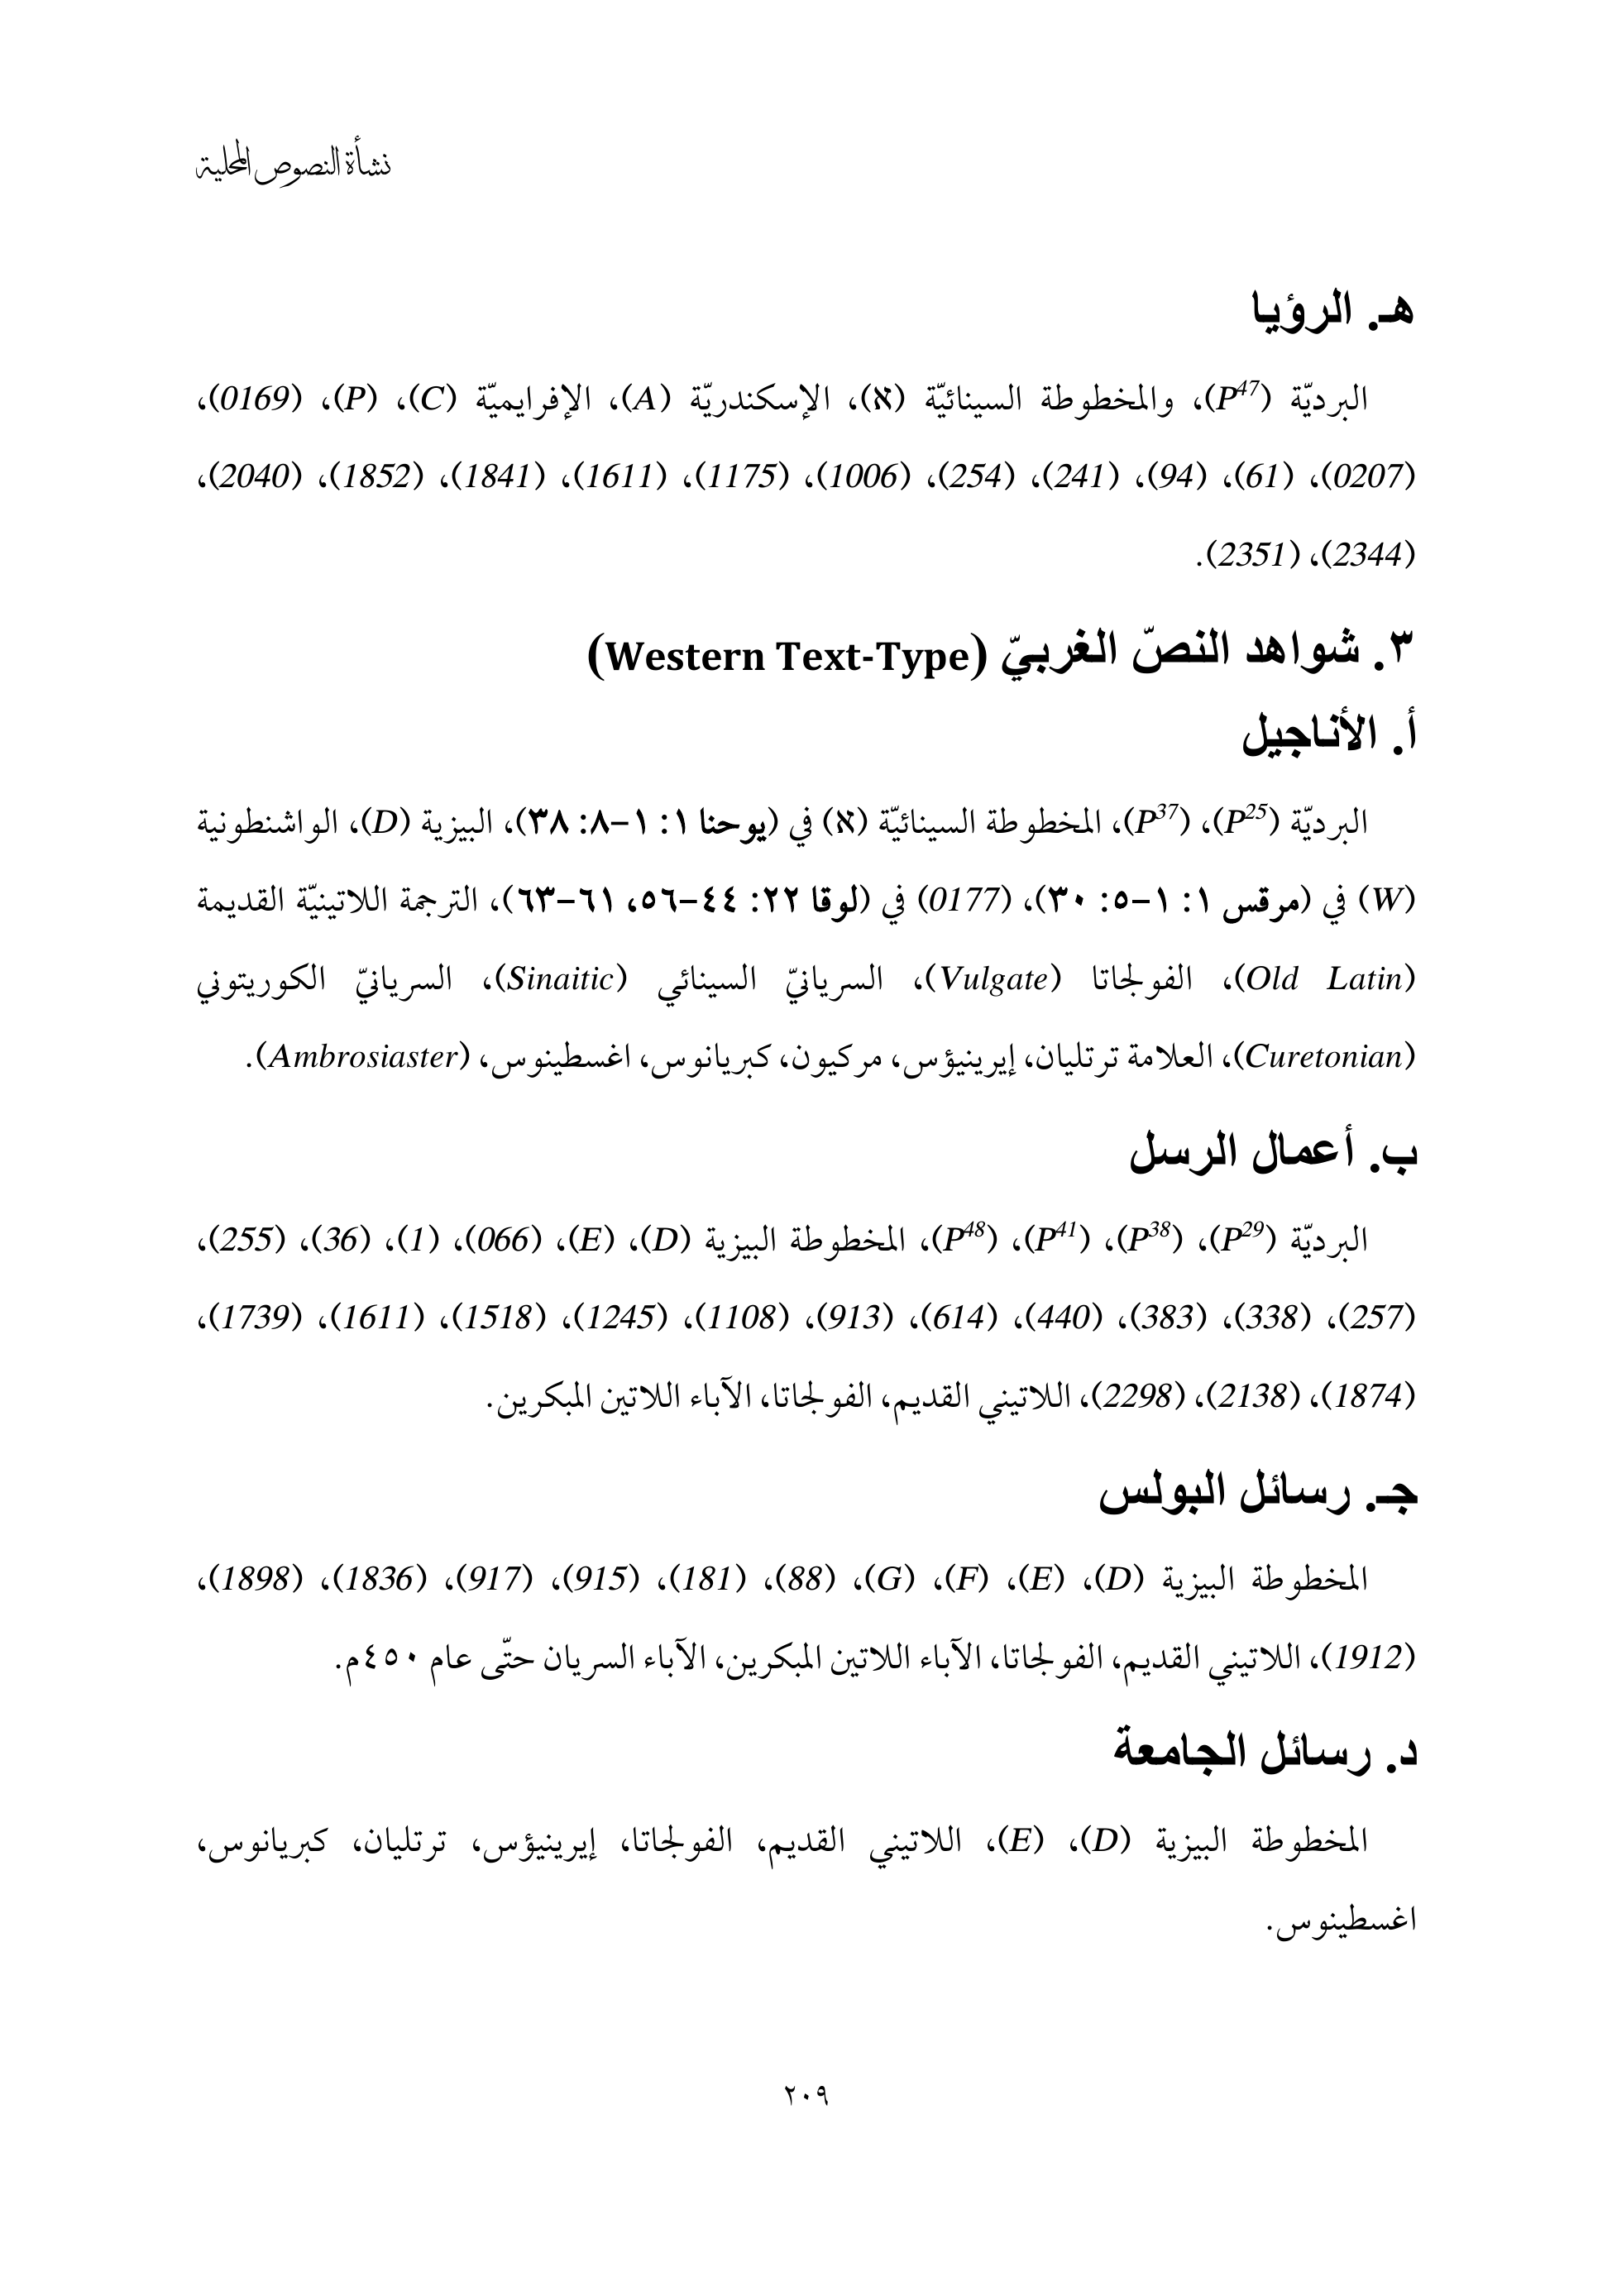 نشأة النصوص المحلية
هـ. الرؤيا
البرديّة (P47)، والمخطوطة السينائيّة (א)، الإسكندريّة (A)، الإفرايميّة (C)، (P)، (0169)،
(0207)، (61)، (94)، (241)، (254)، (1006)، (1175)، (1611)، (1841)، (1852)، (2040)،
(2344)، (2351).
٣. شواهد النصّ الغربيّ (Western Text-Type)
أ. الأناجيل
البرديّة (P25)، (P37)، المخطوطة السينائيّة (א) في (يوحنا ١: ١-٨: ٣٨)، البيزية (D)، الواشنطونية
(W) في (مرقس ١: ١-٥: ٣٠)، (0177) في (لوقا ٢٢: ٤٤-٥٦، ٦١-٦٣)، الترجمة اللاتينيّة القديمة
(Old Latin)، الفولجاتا (Vulgate)، السريانيّ السينائي (Sinaitic)، السريانيّ الكوريتوني
(Curetonian)، العلامة ترتليان، إيرينيؤس، مركيون، كبريانوس، اغسطينوس، (Ambrosiaster).
ب. أعمال الرسل
البرديّة (P29)، (P38)، (P41)، (P48)، المخطوطة البيزية (D)، (E)، (066)، (1)، (36)، (255)،
(257)، (338)، (383)، (440)، (614)، (913)، (1108)، (1245)، (1518)، (1611)، (1739)،
(1874)، (2138)، (2298)، اللاتيني القديم، الفولجاتا، الآباء اللاتين المبكرين.
جـ. رسائل البولس
المخطوطة البيزية (D)، (E)، (F)، (G)، (88)، (181)، (915)، (917)، (1836)، (1898)،
(1912)، اللاتيني القديم، الفولجاتا، الآباء اللاتين المبكرين، الآباء السريان حتّى عام ٤٥٠م.
د. رسائل الجامعة
المخطوطة البيزية (D)، (E)، اللاتيني القديم، الفولجاتا، إيرينيؤس، ترتليان، كبريانوس،
اغسطينوس.
٢٠٩